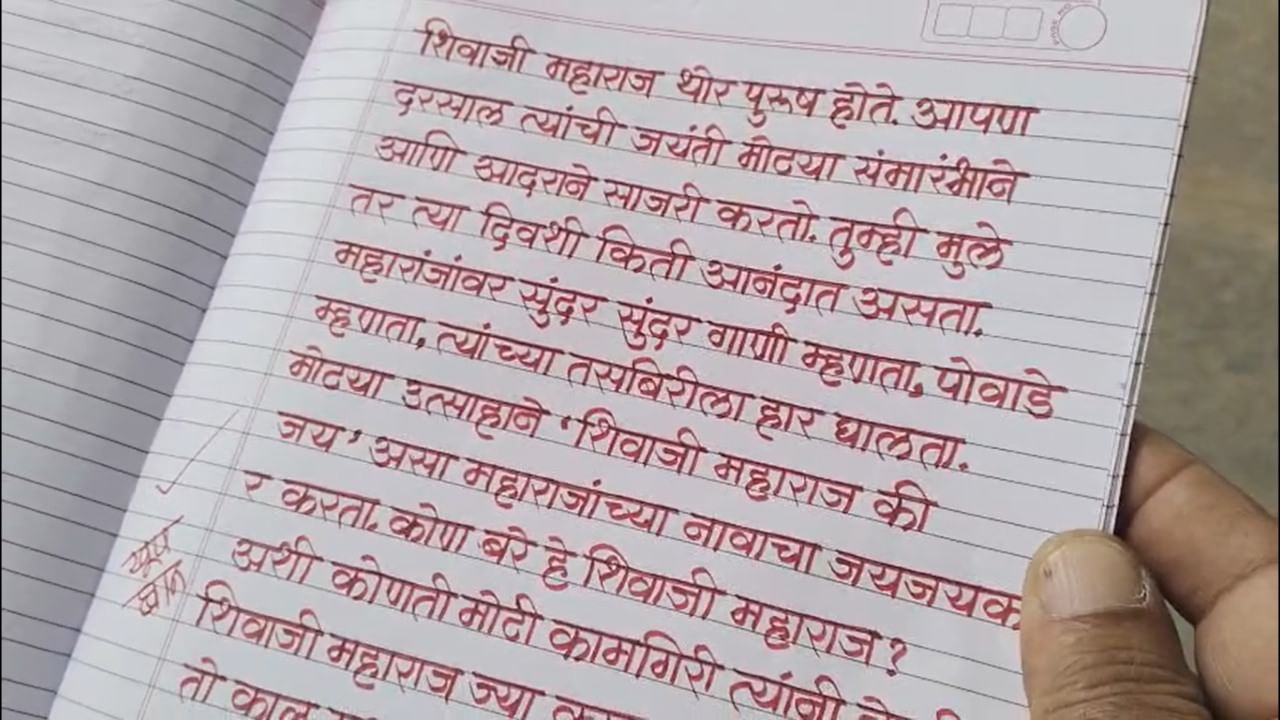 शिवाजी महाराज थोर पुरूष होते. आपण
दरसाल त्यांची जयंती मोटया संमारंभाने
आणि आदराने साजरी करतो. तुम्ही मुले
तर त्या दिवशी किती आनंदात असता.
महारांजांवर सुंदर सुंदर गाणी म्हणता, पोवाडे
म्हणता, त्यांच्या तसबिरीला हार घालता.
मोटया उत्साहाने 'शिवाजी महाराज की
जय' असा महाराजांच्या नावाचा जयजयक
र करता. कोण बरे हे शिवाजी महाराज?
अशी कोणती मोटी कामगिरी त्यांनी
शिवाजी महाराज ज्या
तो काळ